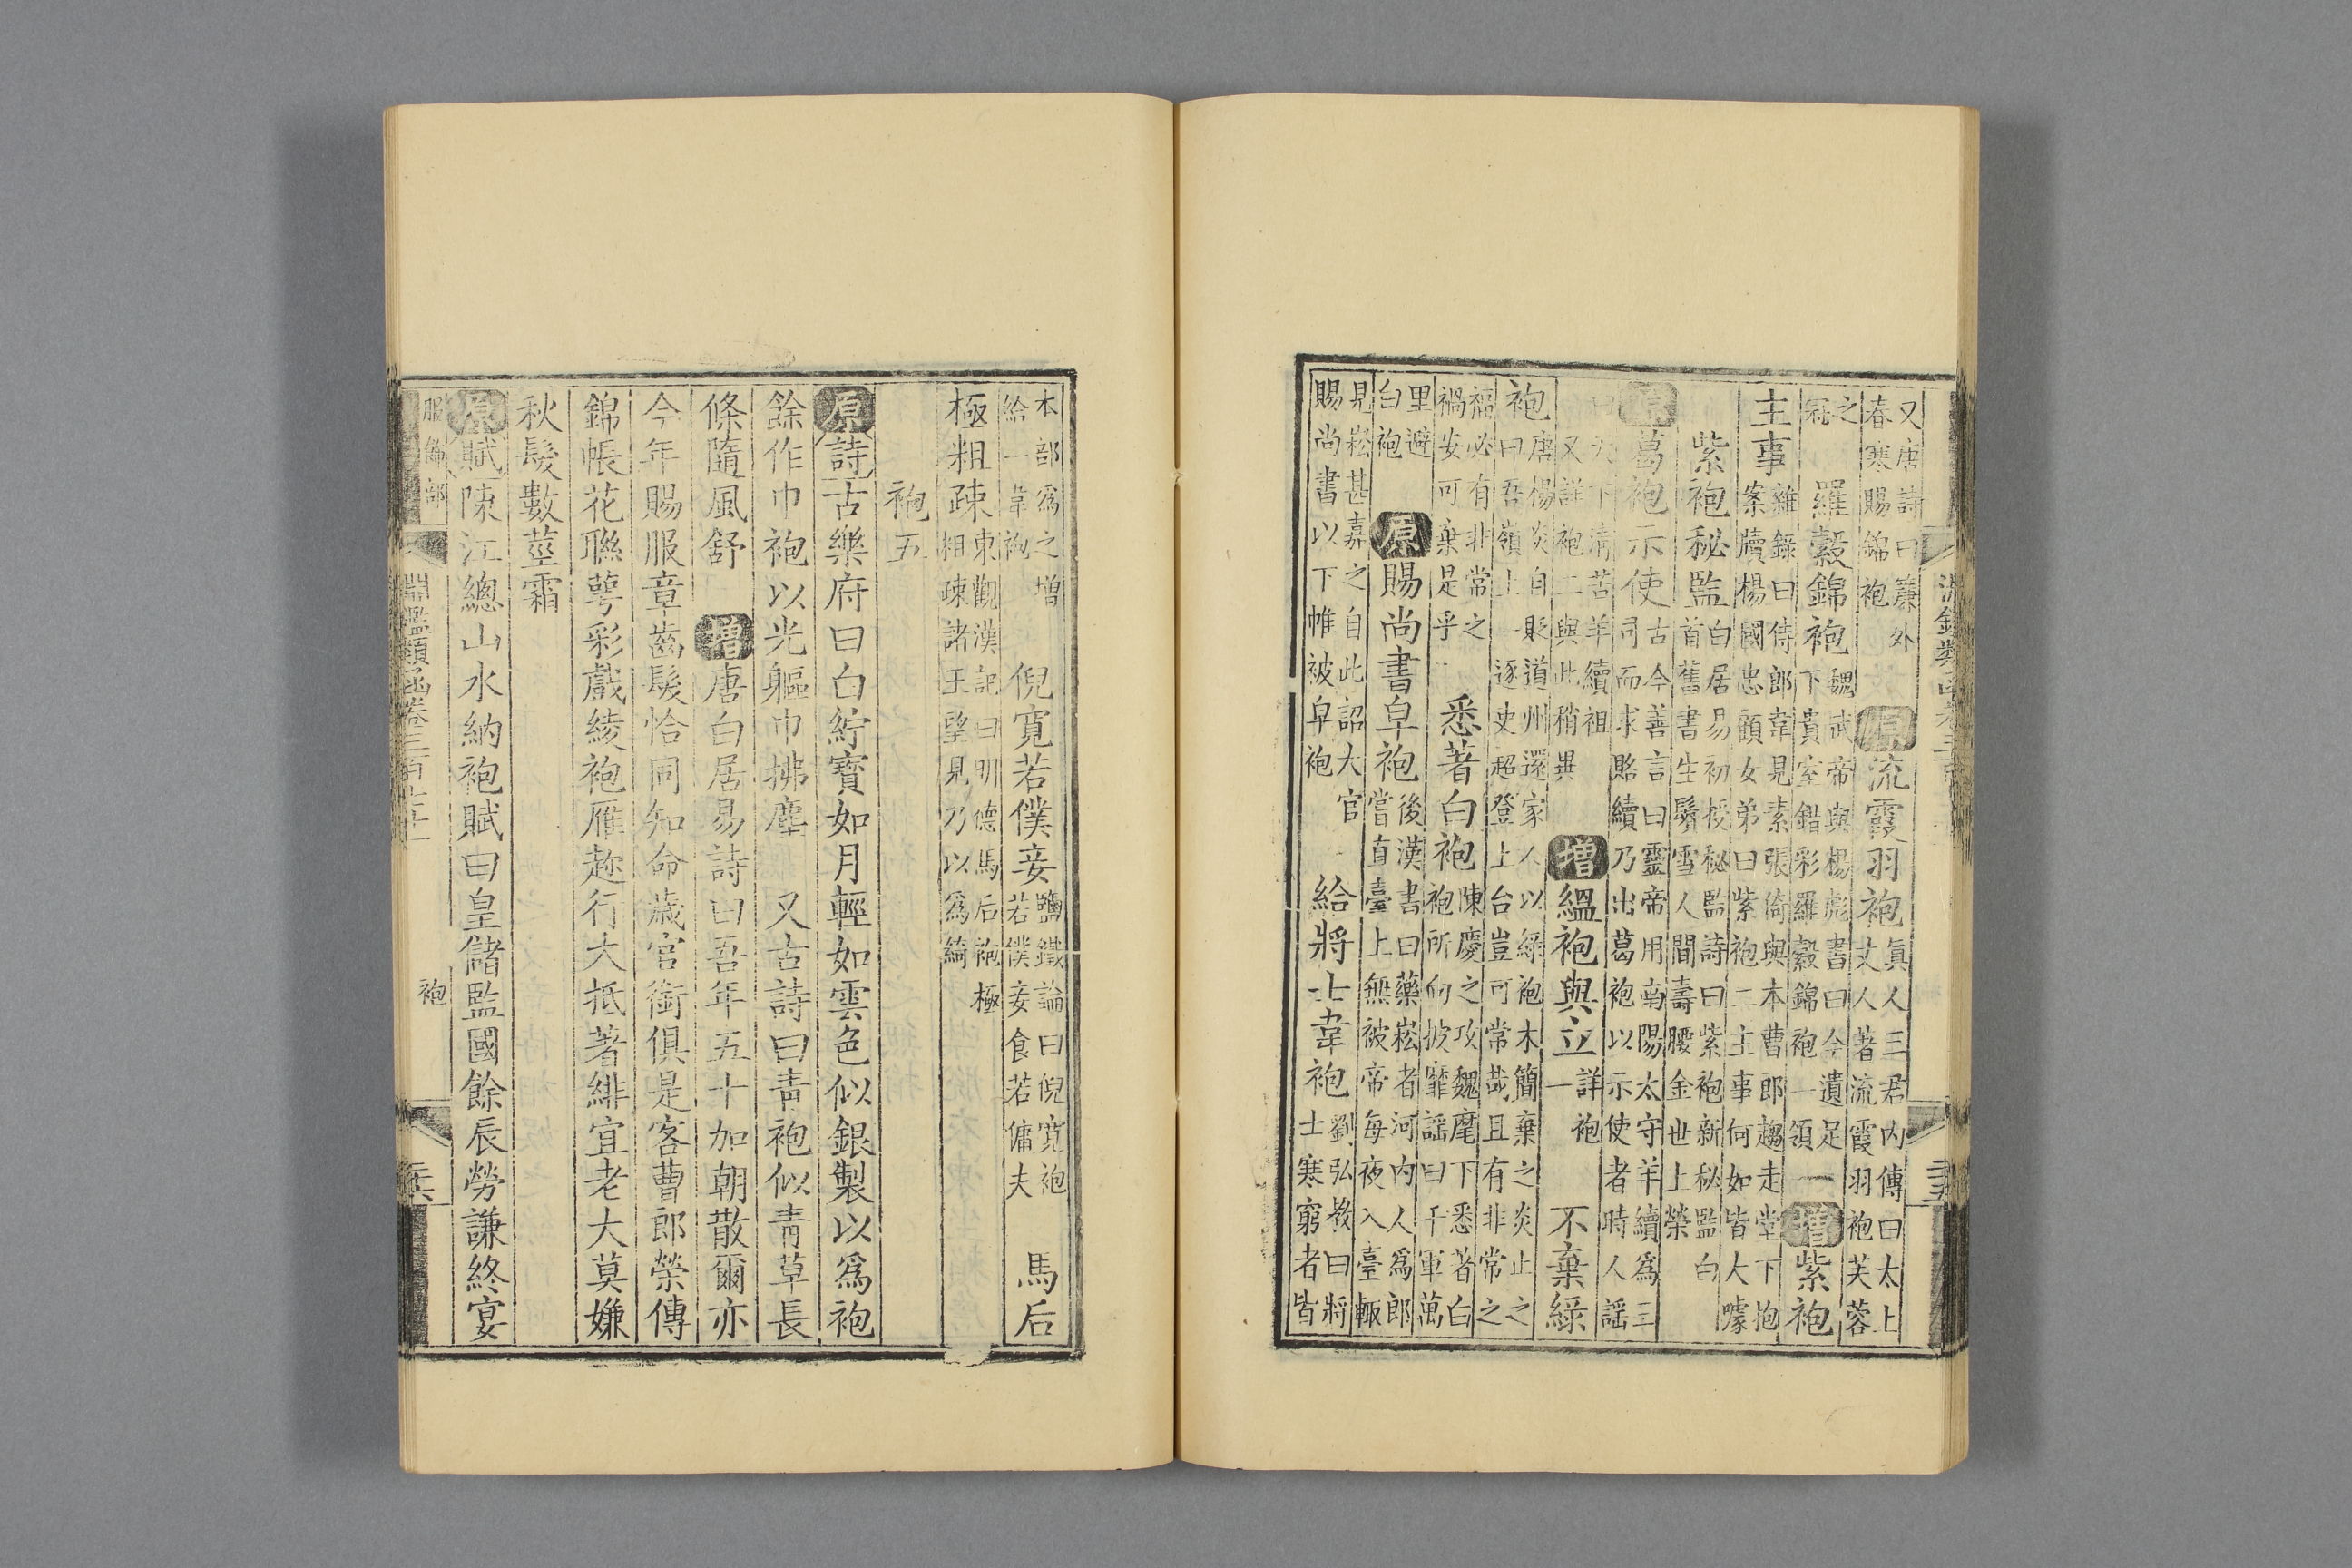 又唐詩曰簾外
春寒賜錦袍
原流霞羽袍
眞人三君內傳曰太上
丈人著流霞羽袍芙蓉
之
冠
羅縠錦袍
魏武帝與楊彪書曰今遺足
下貴室錯彩羅縠錦袍一領
增紫袍
主事
雜錄曰侍郎韋見素張倚與本曹郎趨走堂下抱
案牘楊國忠顧女弟曰紫袍二主事何如皆大噱
紫袍秘監
白居易初授秘監詩曰紫袍新秘監白
首舊書生鬢雪人間壽腰金世上榮
原葛袍示使
古今善言曰靈帝用南陽太守羊續爲三
司而求賂續乃出葛袍以示使者時人謠
曰天下清苦羊續祖
又詳袍二與此稍異
增縕袍與立
詳袍
一
不棄綠
袍
唐楊炎自貶道州還家人以綠袍木簡棄之炎止之
曰吾嶺上一逐吏超登上台豈可常哉且有非常之
福必有非常之
禍安可棄是乎
悉著白袍
陳慶之攻魏麾下悉著白
袍所向披靡謠曰千軍萬
里避
白袍
原賜尚書皁袍
後漢書曰藥崧者河內人爲郎
嘗直臺上無被帝每夜入臺輒
見崧甚嘉之自此詔大官
賜尚書以下帷被皁袍
給將士韋袍
劉弘教曰將
士寒窮者皆
本部爲之增
給一韋袍
倪寬若僕妾
鹽鐵論曰倪寬袍
若僕妾食若傭夫
馬后
極粗疎
東觀漢記曰明德馬后袍極
粗疎諸王望見乃以爲綺
袍五
原詩古樂府曰白紵寶如月輕如雲色似銀製以爲袍
餘作巾袍以光軀巾拂塵 又古詩曰靑袍似靑草長
條隨風舒 增唐白居易詩曰吾年五十加朝散爾亦
今年賜服章齒髮恰同知命歲官銜俱是客曹郎榮傳
錦帳花聯萼彩戲綾袍雁趂行大抵著緋宜老大莫嫌
秋髮數莖霜
原賦陳江總山水納袍賦曰皇儲監國餘辰勞謙終宴
服飾部
淵鑑類函卷三百七十一
袍